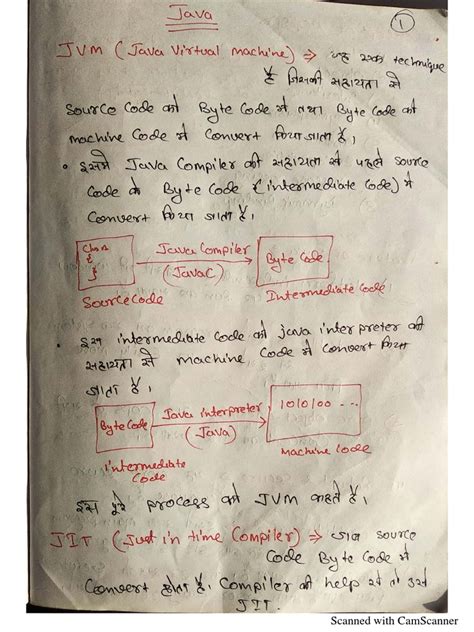 Java
1
JVM (Java Virtual machine) ⇒ यह एक technique
है जिसकी सहायता से
Source Code को Byte Code में तथा Byte Code को
machine Code में Convert किया जाता है।
• इसमें Java Compiler की सहायता से पहले source
Code को Byte Code (intermediate Code) में
Convert किया जाता है।
Class
{
}
Java Compiler
(JavaC)
Byte Code
Source Code
Intermediate Code
• इस intermediate Code को java interpreter की
सहायता से machine Code में Convert किया
जाता है।
Byte Code
Java interpreter
(Java)
1010100 ...
intermediate
Code
Machine Code
इस पूरे process को JVM कहते हैं।
JIT (Just in time Compiler) ⇒ जब source
Code Byte Code में
Convert होता है। Compiler की help से तो उसे
JIT.
Scanned with CamScanner